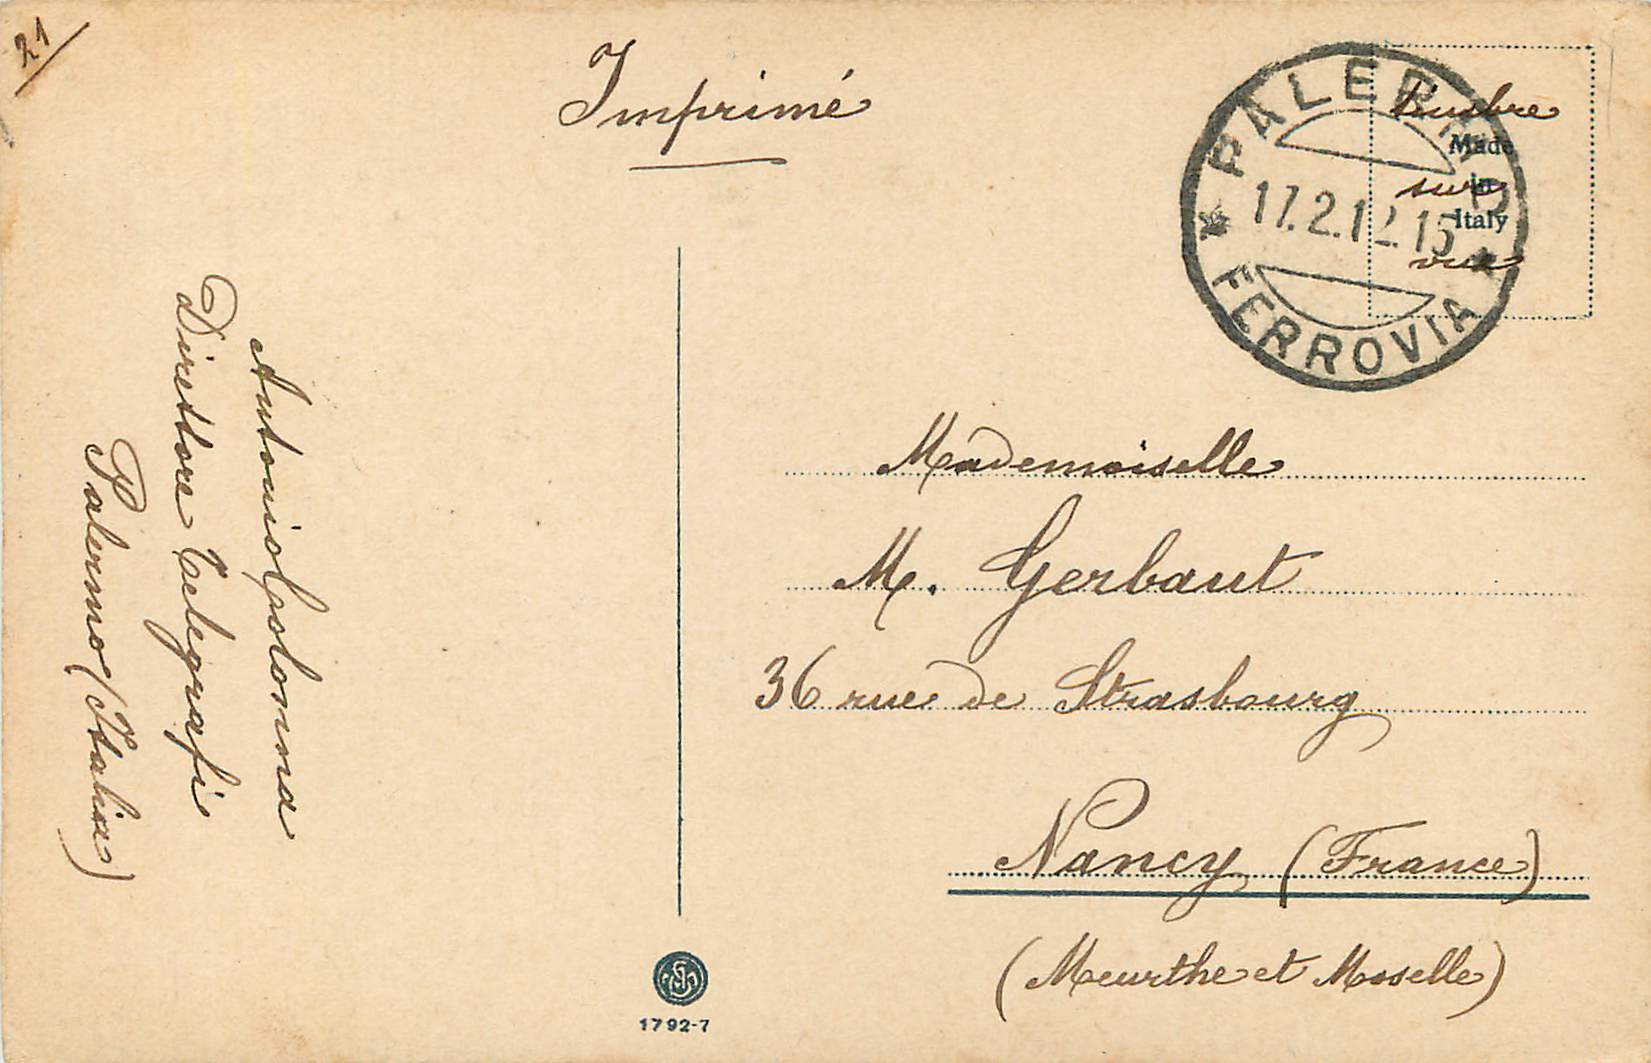 21
Imprimé
PALERMO
17.2.12.15
FERROVIA
timbre
sur
vue
Made
in
Italy
Mademoiselle
M. Gerbaut
36 rue de Strasbourg
Nancy (France)
(Meurthe et Moselle)
Antonio Colonna
Direttore Telegrafi
Palermo (Italia)
1792-7